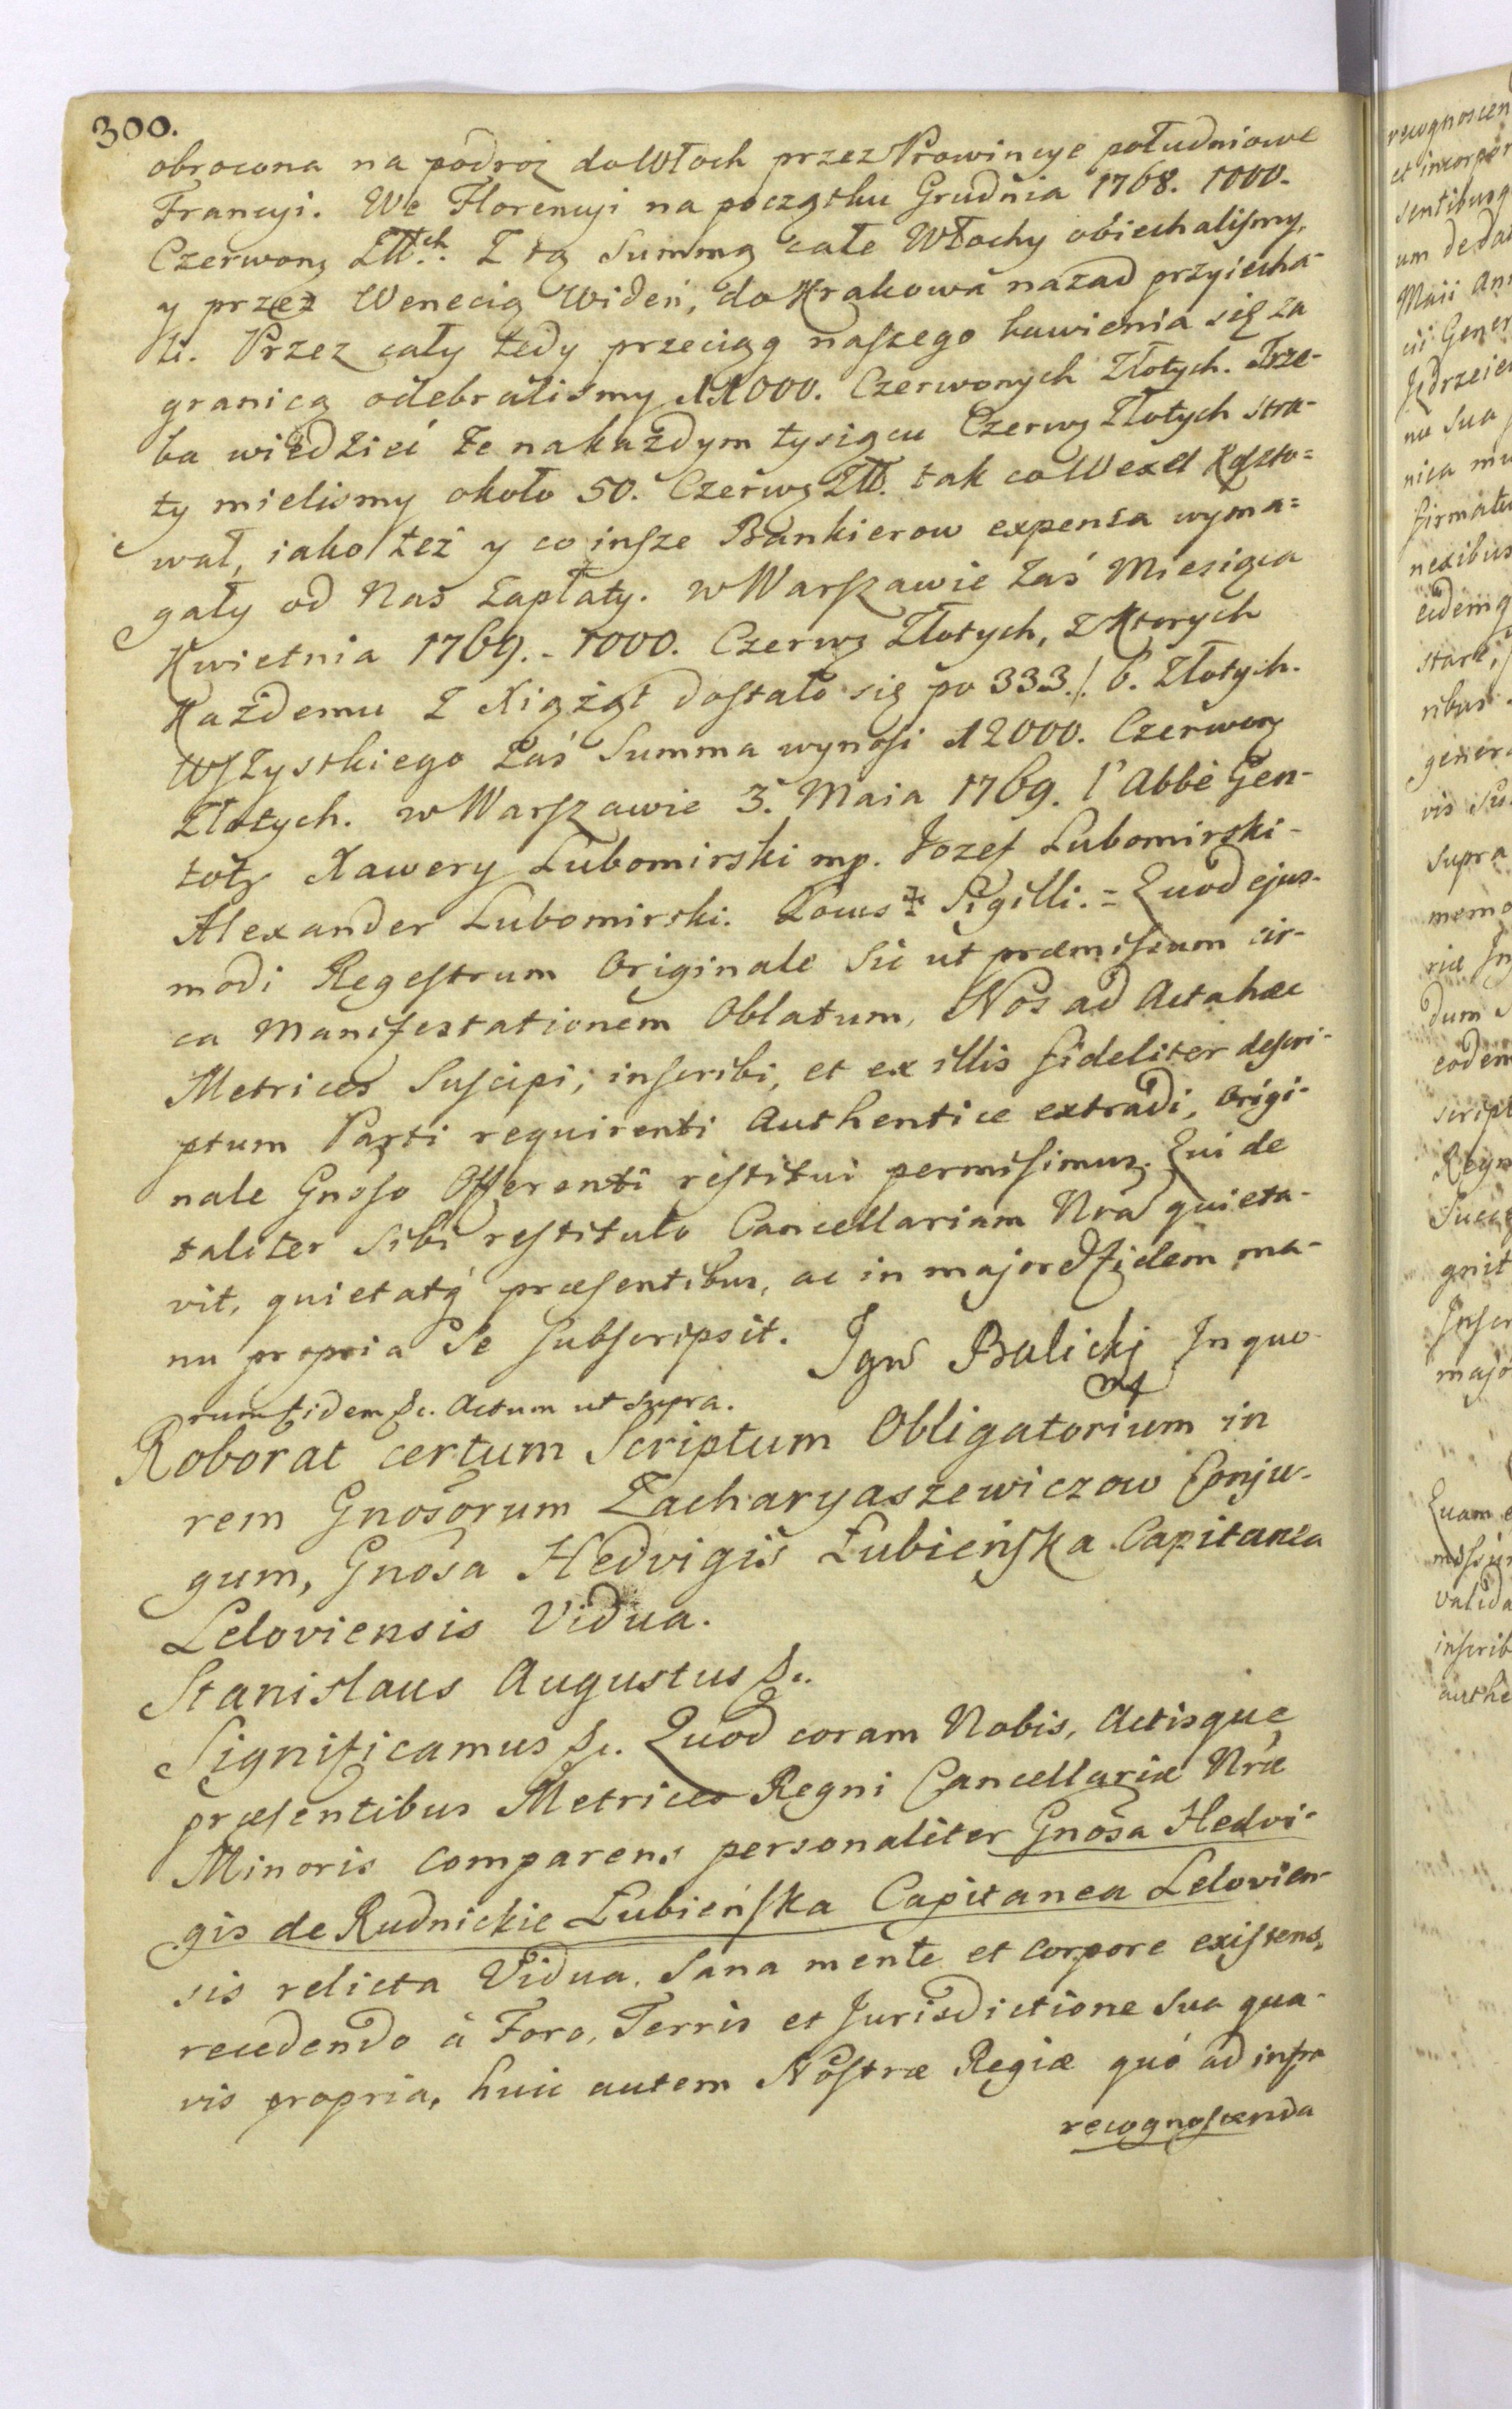 300.
obrocona na podroz do Włoch przez Prowincye południowe
Francyi. We Florencyi na początku Grudnia 1768. 1000.
Czerwonẏ Złł.ch. Z tą Summą całe Włochy obiechaliſmy,
y przez Wenecią Wideń, do Krakowa nazad przyiecha-
li. Przez cały tedy przeciąg naſzego bawienia się za
granicą odebraliśmy 11000. Czerwonych Złotych. Trze-
ba wiedzieć że na każdym tysiącu Czerwẏ Złotych stra-
ty mieliśmy około 50. Czerwẏ Złł. tak co Wexel Kąszto=
wał, iako też y co inſze Bankierow expensa wyma=
gały od Nas Zapłaty. w Warſzawie Zaś Miesiąca
Kwietnia 1769. - 1000. Czerwẏ Złotych, z Ktorych
Każdemu z Xiążąt doſtało się po 333./. 6. Złotych.
Wſzystkiego Zaś Summa wynoſi 12000. Czerwonẏ
Złotych. w Warſzawie 3. Maia 1769. l'Abbé Gen-
totz Xawery Lubomirski mp. Jozef Lubomirski -
Alexander Lubomirski. Locus Sigilli. = Quod ejus-
modi Regeſtrum Originale Sic ut præmiſsum cir-
ca Manifestationem Oblatum, Nos ad Acta hæc
Metrices Suſcipi, inſcribi, et ex illis fideliter deſcri-
ptum Parti requirenti Authentice extradi, Origi-
nale Gnoſo Offerenti reſtitui permiſimus. Qui de
taliter Sibi reſtituto Cancellariam Nrã quieta-
vit, quietatq́ præſentibus, ac in majorẽ fidem ma-
nu propria Se ſubſcripsit. Ign Balicki mp In quo-
rum fidem &c. Actum ut Supra.
Roborat certum Scriptum Obligatorium in
rem Gnosorum Zacharyaszewiczow Conju-
gum, Gnosa Hedvigis Łubieńſka Capitanea
Leloviensis Vidua.
Stanislaus Augustus &c.
Significamus &c. Quod coram Nobis, Actisque
præſentibus Metrices Regni Cancellariæ Nræ
Minoris comparens personaliter Gnosa Hedvi-
gis de Rudnickie Łubieńſka Capitanea Lelovien-
sis relicta Vidua. Sana mente et corpore exiſtens,
recedendo à Foro, Terris et Jurisdictione sua qua-
vis propria, huic autem Noſtræ Regiæ quó ad infra
recognoſcenda